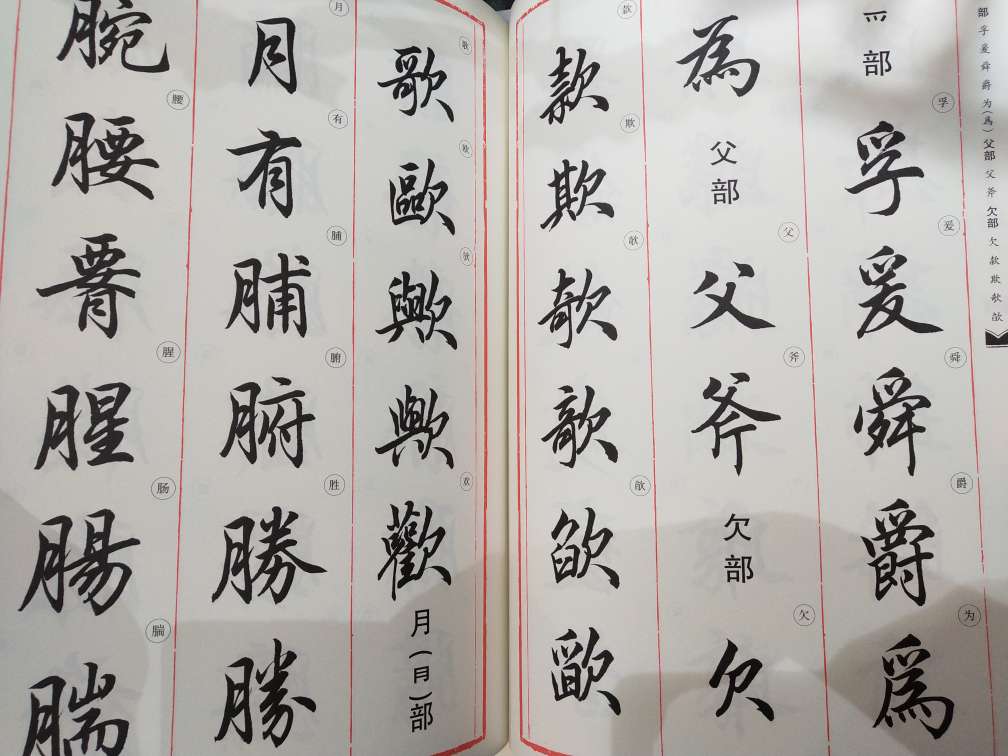 部 孚 爰 舜 爵 为(為) 父部 父 斧 欠部 欠 款 欺 欹 歆
部
孚 孚
爰 爰
舜 舜
爵 爵
为 爲
為
父部
父 父
斧 斧
欠部
欠 欠
款 款
欺 欺
欹
歆
歌 歌
歐
歟
歟
欢 歡
月(⺝)部
月 月
有 有
脯 脯
腑 腑
胜 勝
勝
腕
腰 腰
腥 腥
肠 腸
腨 腨